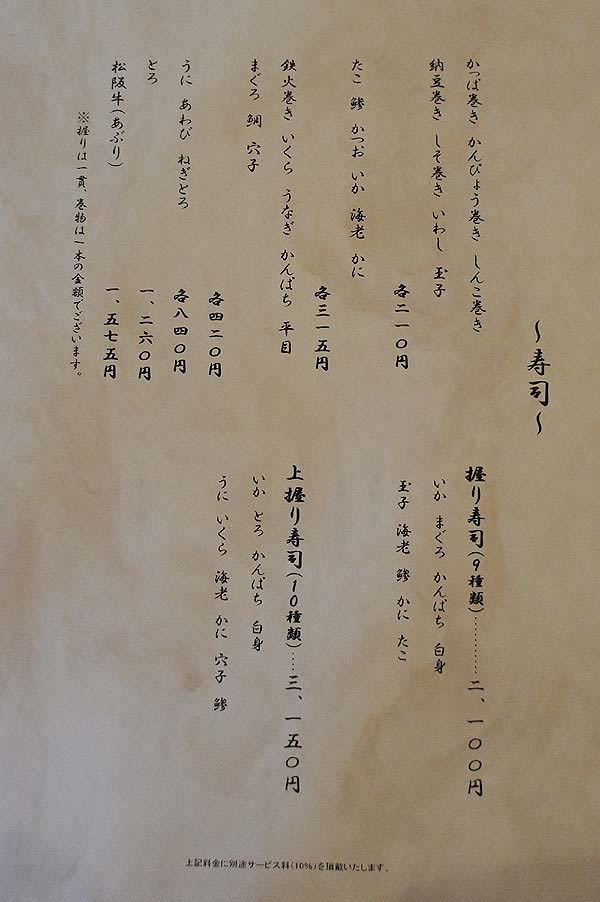 ～寿司～
かっぱ巻き かんぴょう巻き しんこ巻き
納豆巻き しそ巻き いわし 玉子
各二一〇円
たこ 鯵 かつお いか 海老 かに
各三一五円
鉄火巻き いくら うなぎ かんぱち 平目
まぐろ 鯛 穴子
各四二〇円
うに あわび ねぎとろ
各八四〇円
とろ
一、二六〇円
松阪牛(あぶり)
一、五七五円
※握りは一貫、巻物は一本の金額でございます。
握り寿司(9種類)…………二、一〇〇円
いか まぐろ かんぱち 白身
玉子 海老 鯵 かに たこ
上握り寿司(10種類)……三、一五〇円
いか とろ かんぱち 白身
うに いくら 海老 かに 穴子 鯵
上記料金に別途サービス料(10%)を頂戴いたします。